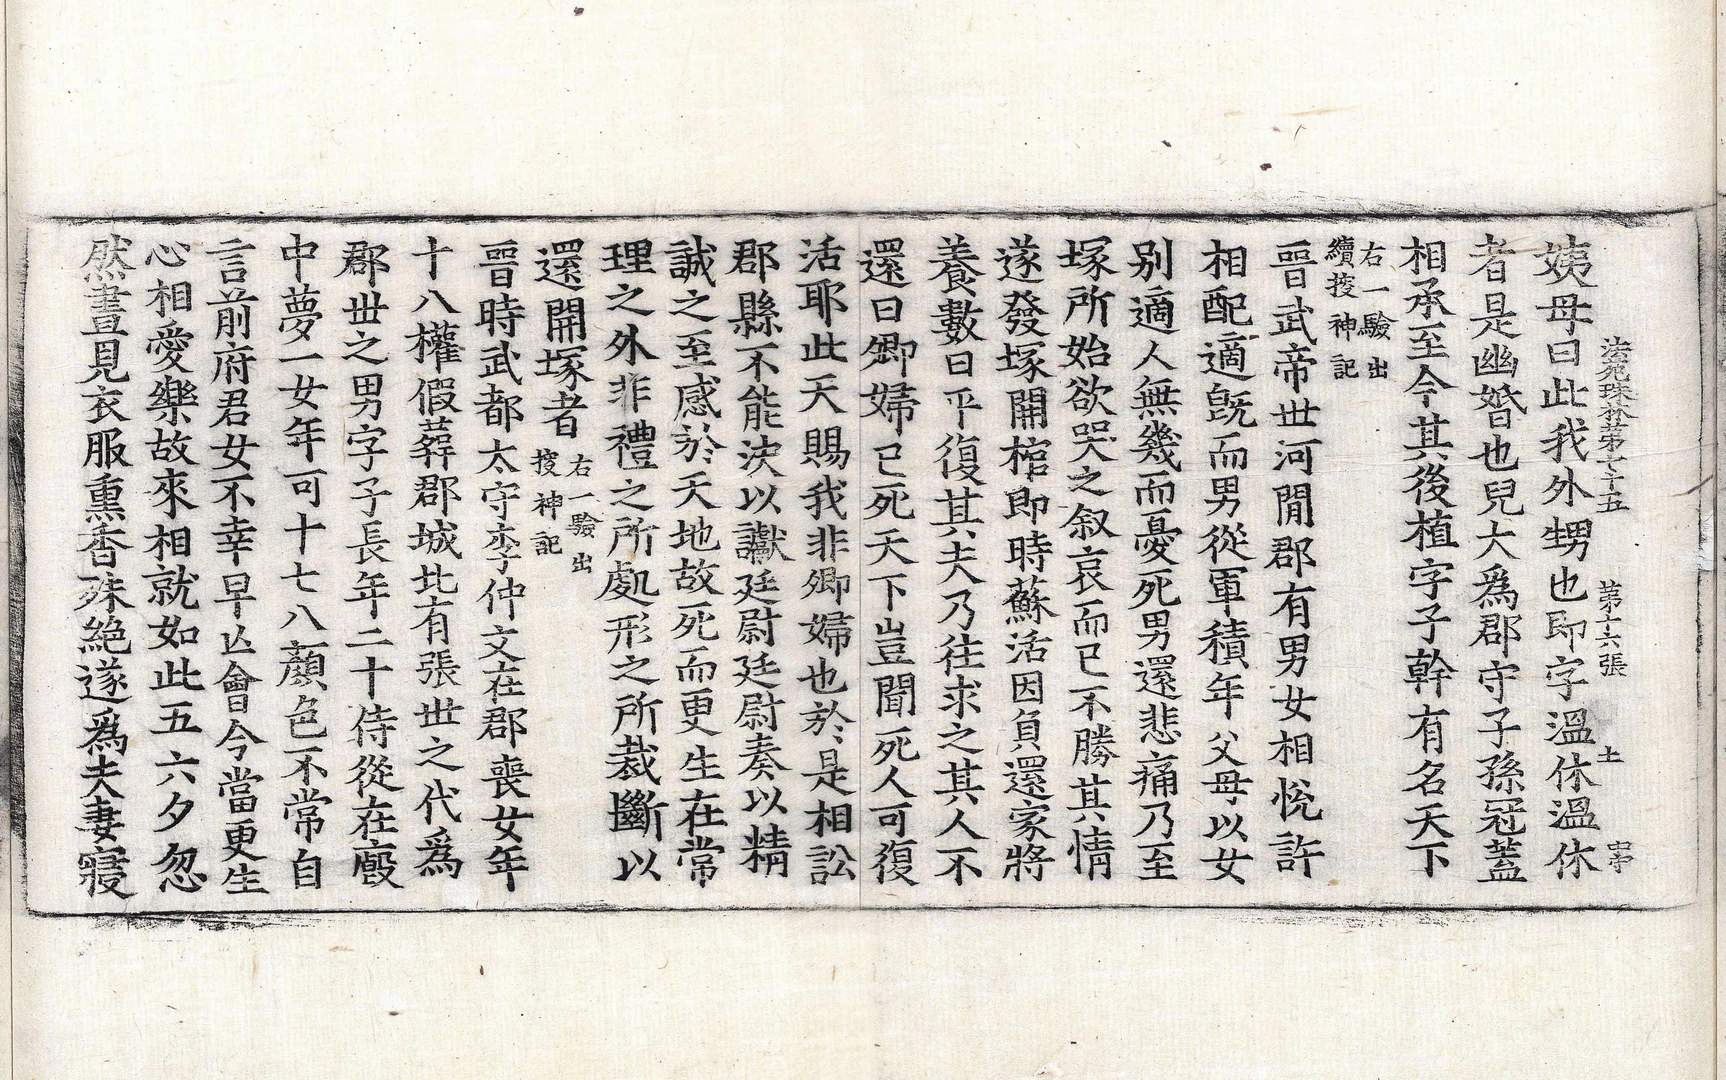 法苑珠林第七十五　第十六張　土
姨母曰此我外甥也即字溫休溫休
者是幽婚也兒大爲郡守子孫冠蓋
相承至今其後植字子幹有名天下
右一驗出
續搜神記
晉武帝世河閒郡有男女相悅許
相配適旣而男從軍積年父母以女
別適人無幾而憂死男還悲痛乃至
塚所始欲哭之叙哀而已不勝其情
遂發塚開棺即時蘇活因負還家將
養數日平復其夫乃往求之其人不
還曰卿婦已死天下豈聞死人可復
活耶此天賜我非卿婦也於是相訟
郡縣不能決以讞廷尉廷尉奏以精
誠之至感於天地故死而更生在常
理之外非禮之所處形之所裁斷以
還開塚者
右一驗出
搜神記
晉時武都太守李仲文在郡喪女年
十八權假葬郡城北有張世之代爲
郡世之男字子長年二十侍從在廄
中夢一女年可十七八顔色不常自
言前府君女不幸早亾會今當更生
心相愛樂故來相就如此五六夕忽
然晝見衣服熏香殊絶遂爲夫妻寢